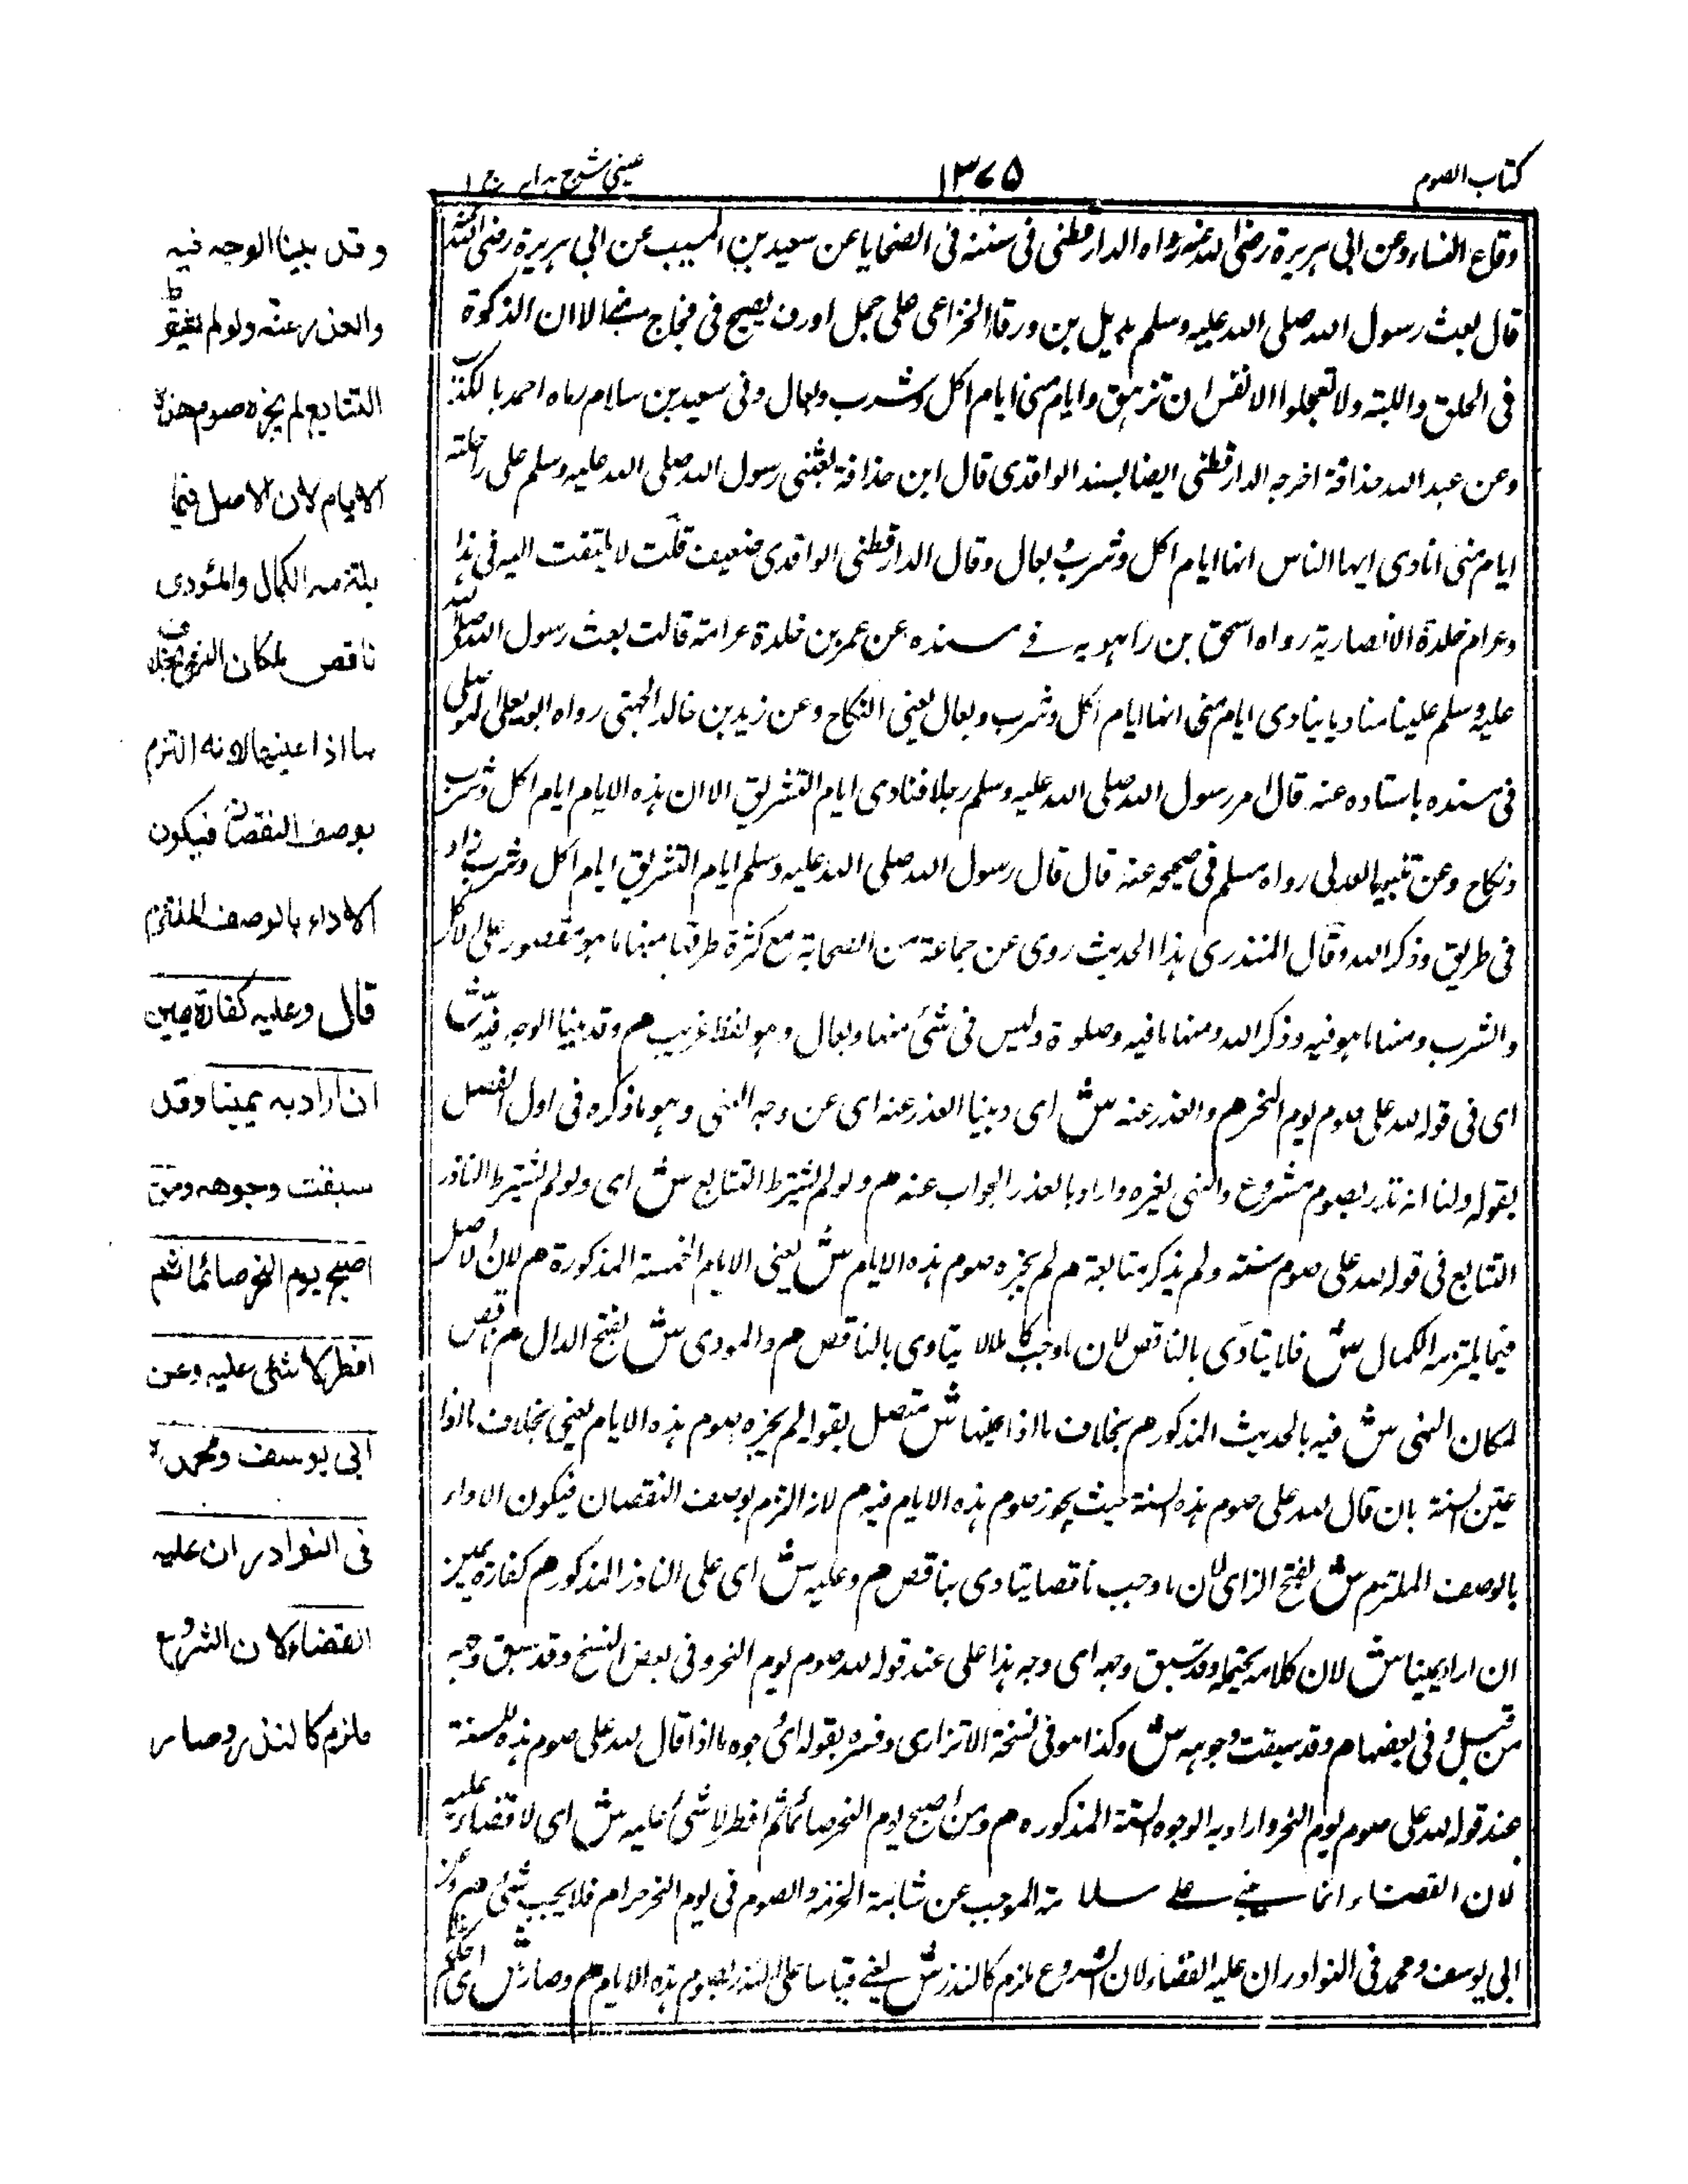 كتاب الصوم
١٣٧٥
عينى شرح هدايه ج ١
وقاع النساء وعن ابى هريرة رضى الله عنه رواه الدارقطنى فى سننه فى الضحايا عن سعيد بن المسيب عن ابى هريرة رضى الله
قال بعث رسول الله صلى الله عليه وسلم بديل بن ورقاء الخزاعى على جمل اورق يصيح فى فجاج منى الا ان الذكوة
فى الحلق واللبة ولا تعجلوا الانفس ان تزهق وايام منى ايام اكل وشرب وبعال وفى سعيد بن سلام رماه احمد بالكذب
وعن عبد الله حذافة اخرجه الدارقطنى ايضا بسند الواقدى قال ابن حذافة بعثنى رسول الله صلى الله عليه وسلم على راحلته
ايام منى انادى ايها الناس انها ايام اكل وشرب وبعال وقال الدارقطنى الواقدى ضعيف قلت لا يلتفت اليه فى هذا
وعرام خلدة الانصارية رواه اسحق بن راهويه فى مسنده عن عمر بن خلدة عن امه قالت بعث رسول الله صلى الله
عليه وسلم علينا مناديا ينادى ايام منى انها ايام اكل وشرب وبعال يعنى النكاح وعن زيد بن خالد الجهنى رواه ابو يعلى الموصلى
فى مسنده باستاده عنه قال امر رسول الله صلى الله عليه وسلم رجلا فنادى ايام التشريق الا ان هذه الايام ايام اكل وشرب
ونكاح وعن نبيشة الهذلى رواه مسلم فى صحيحه عنه قال قال رسول الله صلى الله عليه وسلم ايام التشريق ايام اكل وشرب زاد
فى طريق وذكر الله وقال المنذرى هذا الحديث روى عن جماعة من الصحابة مع كثرة طرقها منها ما هو مقصور على الاكل
والشرب ومنها ما هو فيه وذكر الله ومنها ما فيه وصلوة وليس فى شئ منها وبعال وهو لفظ غريب م وقد بينا الوجه فيه ش
اى فى قوله لله على صوم يوم النحر م والعذر عنه ش اى وبينا العذر عنه اى عن وجه النهى وهو ما ذكره فى اول الفصل
بقوله ولنا انه نذر بصوم مشروع والنهى لغيره واراد بالعذر الجواب عنه م ولو لم يشترط التتابع ش اى ولو لم يشترط الناذر
التتابع فى قوله لله على صوم سنة ولم يذكر متابعة م لم يجزه صوم هذه الايام ش يعنى الايام الخمسة المذكورة م لان الاصل
فيما يلتزمه الكمال ش فلا يتأدى بالناقص لان ما وجب كاملا لا يتادى بالناقص م والمودى ش بفتح الدال م ناقص
لمكان النهى ش فيه بالحديث المذكور م بخلاف ما اذا عينها ش متصل بقوله لم يجزه صوم هذه الايام يعنى بخلاف ما اذا
عين السنة بان قال لله على صوم هذه السنة حيث يجوز صوم هذه الايام فيه م لانه التزم بوصف النقصان فيكون الاداء
بالوصف الملتزم ش بفتح الزاى لان ما وجب ناقصا يتادى بناقص م وعليه ش اى على الناذر المذكور م كفارة يمين
ان اراد يمينا ش لان كلامه يحتمله وقد سبق وجهه اى وجه هذا على عند قوله لله صوم يوم النحر وفى بعض النسخ وقد سبق وجهه
من قبل وفى بعضها م وقد سبقت وجوهه ش وكذا هو فى نسخة الاترازى وفسره بقوله اى وجوه ما اذا قال لله على صوم هذه السنة
عند قوله لله على صوم يوم النحر واراد به الوجوه الستة المذكوره م ومن اصبح يوم النحر صائما ثم افطر لا شئ عليه ش اى لا قضاء عليه
لان القضاء انما يبنى على سلامة الموجب عن شائبة الحرمة والصوم فى يوم النحر حرام فلا يجب شئ م وعن
ابى يوسف ومحمد فى النوادر ان عليه القضاء لان الشروع ملزم كالنذر ش يعنى قياسا على النذر بصوم هذه الايام م وصار ش اى حكم
وقد بينا الوجه فيه
والعذر عنه ولو لم يشترط
التتابع لم يجزه صوم هذه
الايام لان الاصل فيما
يلتزمه الكمال والمئودى
ناقص لمكان النهى بخلاف
ما اذا عينها لانه التزم
بوصف النقصان فيكون
الاداء بالوصف الملتزم
قال وعليه كفارة يمين
ان اراد به يمينا وقد
سبقت وجوهه ومن
اصبح يوم النحر صائما ثم
افطر لا شئ عليه وعن
ابى يوسف ومحمد رح
فى النوادر ان عليه
القضاء لان الشروع
ملزم كالنذر وصار